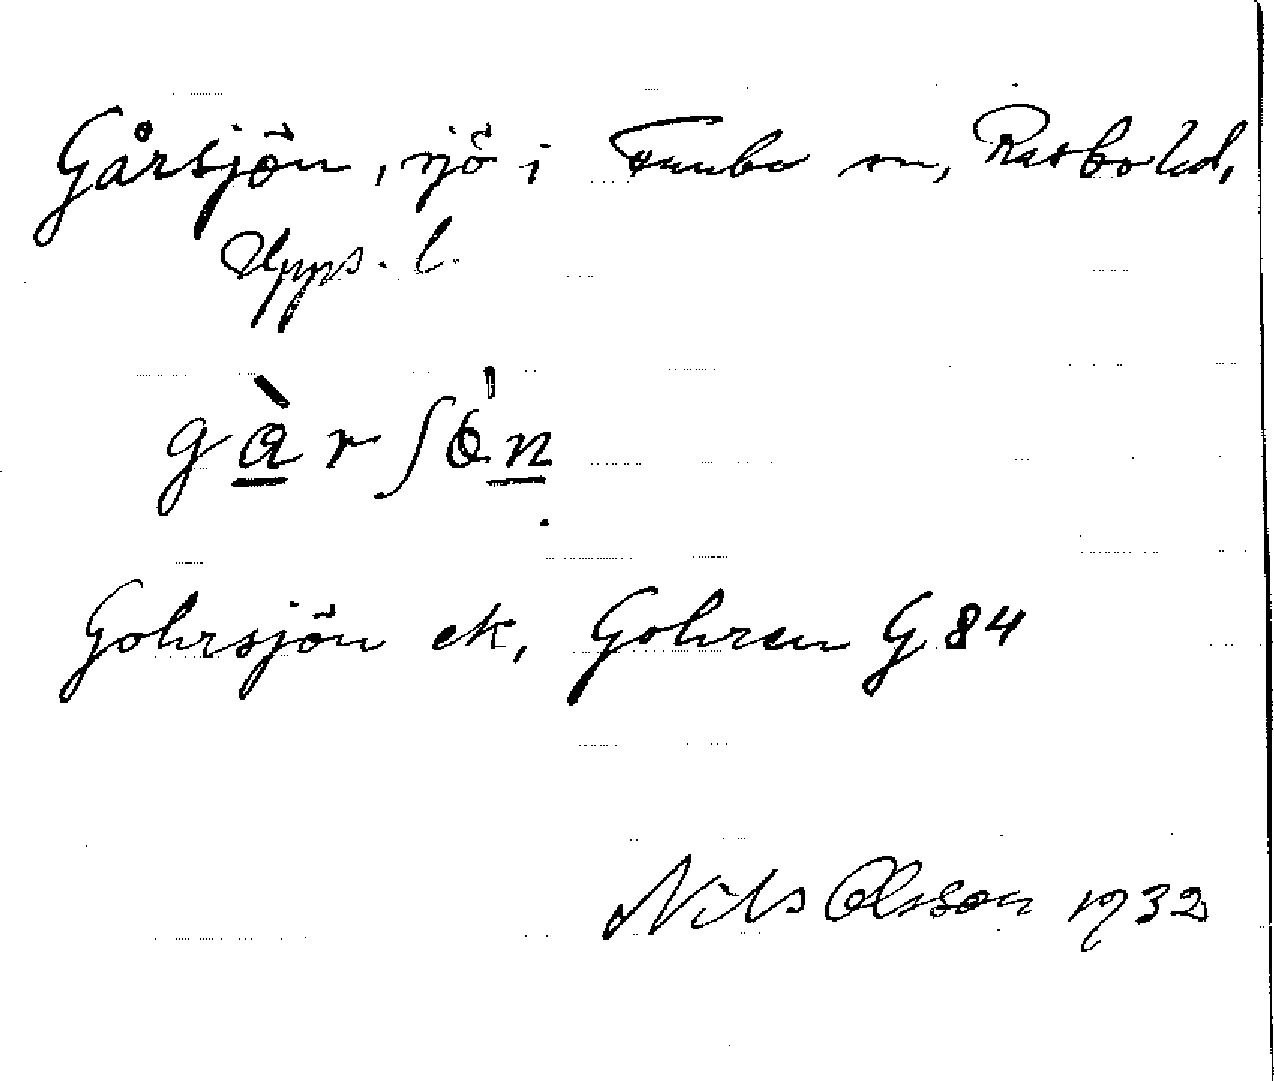 Gårsjön, sjö i Tuna sn, Rasbo hd,
Upps. l.
gàrʃön
Gohrsjön ek, Gohren G 84
Nils Olsson 1932